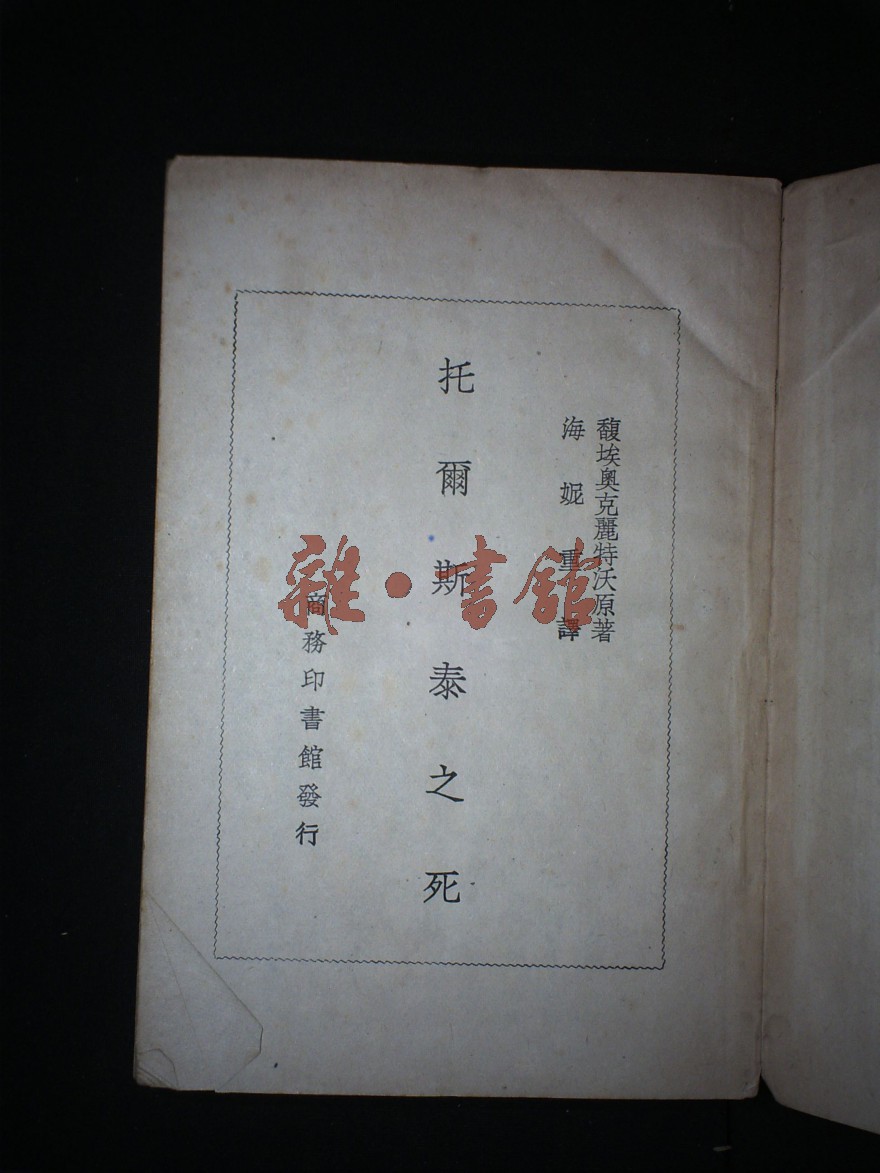 馥埃奧克麗特沃原著
海妮重譯
托爾斯泰之死
商務印書館發行
雜·書館